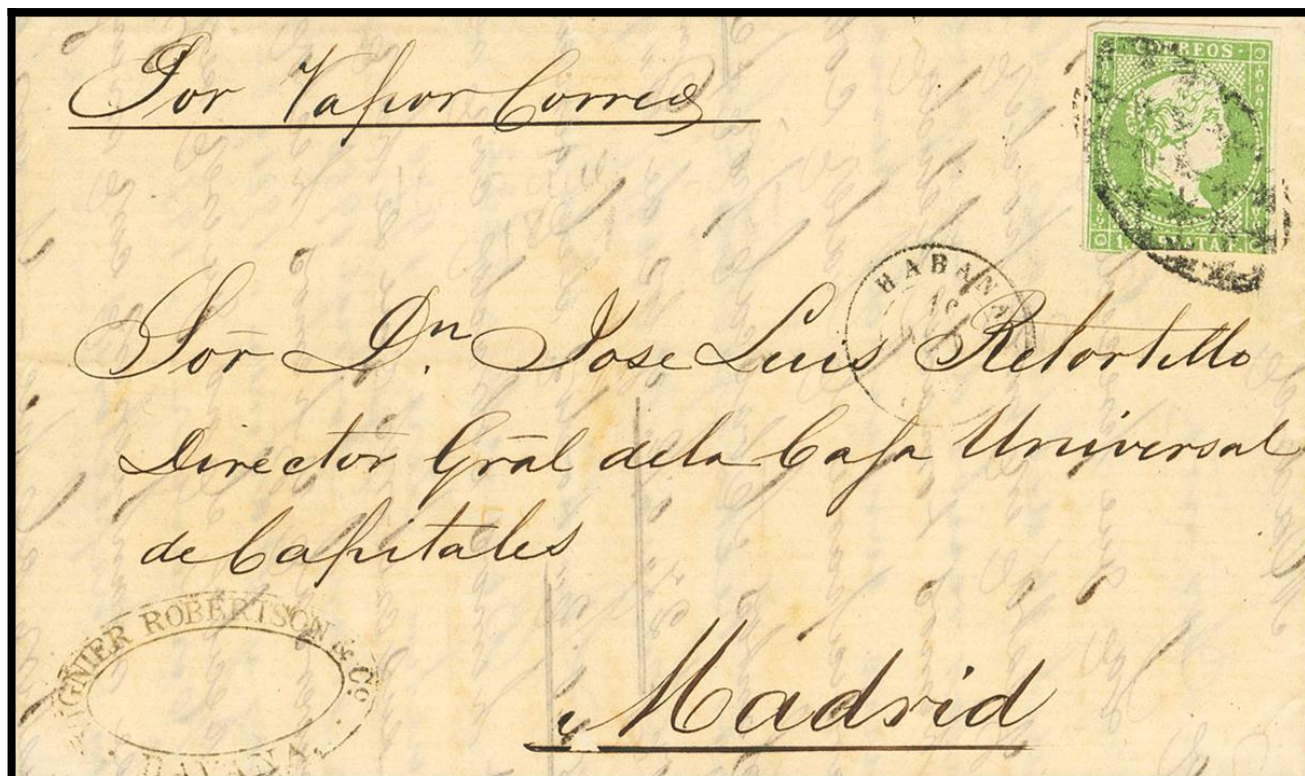 Por Vapor Correo
CORREOS
HABANA
Sor Dn. Jose Luis Retortillo
Director Grāl dela Caja Universal
de Capitales
ROBERTSON & Co.
HAVANA
Madrid